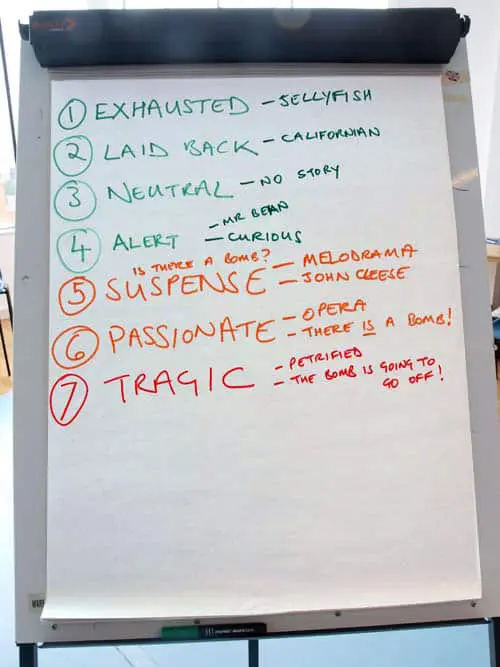 1 EXHAUSTED - JELLYFISH
2 LAID BACK - CALIFORNIAN
3 NEUTRAL - NO STORY
4 ALERT - MR BEAN
- CURIOUS
IS THERE A BOMB?
5 SUSPENSE - MELODRAMA
- JOHN CLEESE
6 PASSIONATE - OPERA
- THERE IS A BOMB!
7 TRAGIC - PETRIFIED
- THE BOMB IS GOING TO
GO OFF!